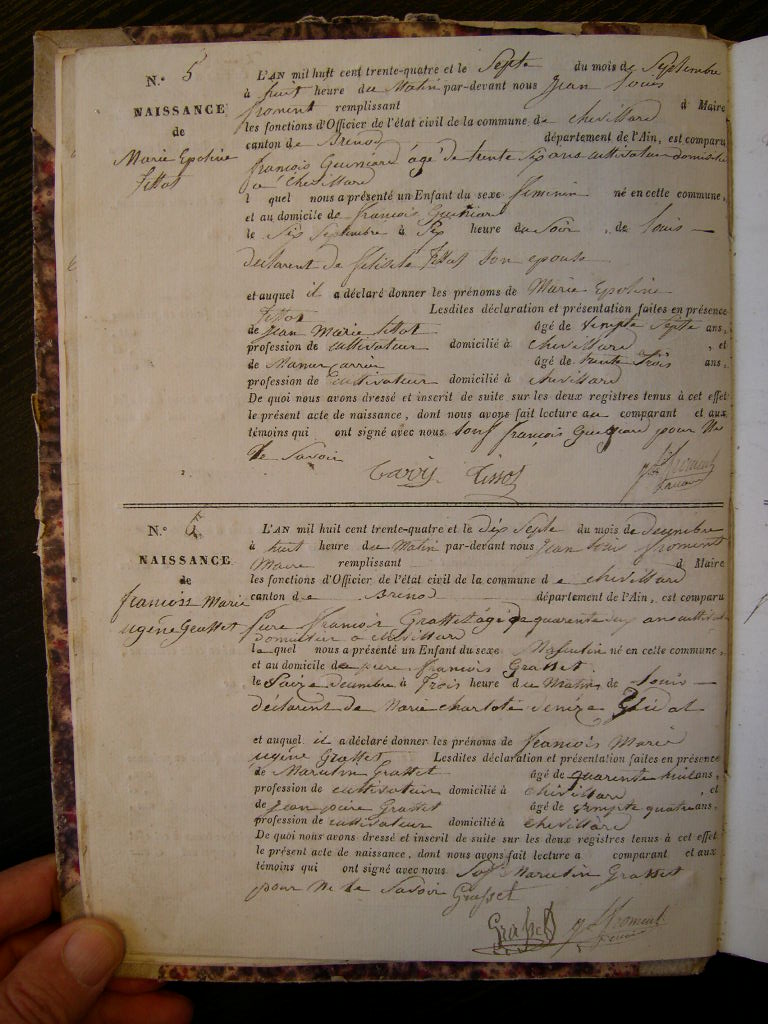 N.° 5
NAISSANCE
de
Marie Epoline
tittot
L'AN mil huit cent trente-quatre et le Septe du mois de Septembre
à huit heure du Matin par-devant nous Jean Louis
froment remplissant d Maire
les fonctions d'Officier de l'état civil de la commune de chevillard
canton de Brenod département de l'Ain, est comparu
françois Guinard âgé de trente six ans cultivateur domicilié
a chevillard
l quel nous a présenté un Enfant du sexe feminin né en cette commune,
et au domicile de francois
le Six Septembre à Six heure du Soir , de louis
declarent de tittot son epouse
et auquel il a déclaré donner les prénoms de Marie Epoline
tittot Lesdites déclaration et présentation faites en présence
de jean Marie tittot âgé de Septe ans,
profession de cultivateur domicilié à chevillard , et
de âgé de trente trois ans,
profession de Cultivateur domicilié à chevillard
De quoi nous avons dressé et inscrit de suite sur les deux registres tenus à cet effet
le présent acte de naissance, dont nous avons fait lecture au comparant et aux
témoins qui ont signé avec nous Souf françois pour Ne
le Savoir
Tissot froment
N.° 6
NAISSANCE
de
francois Marie
ugéne Grasset
L'AN mil huit cent trente-quatre et le dix Septe du mois de decembre
à huit heure du Matin par-devant nous Jean louis froment
Maire remplissant d Maire
les fonctions d'Officier de l'état civil de la commune d e chevillard
canton de Brenod département de l'Ain, est comparu
françois Grasset âgé de quarente ans
a chevillard
le quel nous a présenté un Enfant du sexe Masculin né en cette commune,
et au domicile de pere francois Grasset
le Saize decembre à Trois heure du Matin de louis
declarent de Marie charlote
et auquel il a déclaré donner les prénoms de francois Marie
ugéne Grasset Lesdites déclaration et présentation faites en présence
de Marcelin Grasset âgé de quarente huit ans,
profession de cultivateur domicilié à chevillard , et
de Grasset âgé de quatre ans,
profession de cultivateur domicilié à chevillard
De quoi nous avons dressé et inscrit de suite sur les deux registres tenus à cet effet
le présent acte de naissance, dont nous avons fait lecture a comparant et aux
témoins qui ont signé avec nous Grasset
pour Ne le Savoir Grasset
Grasset froment